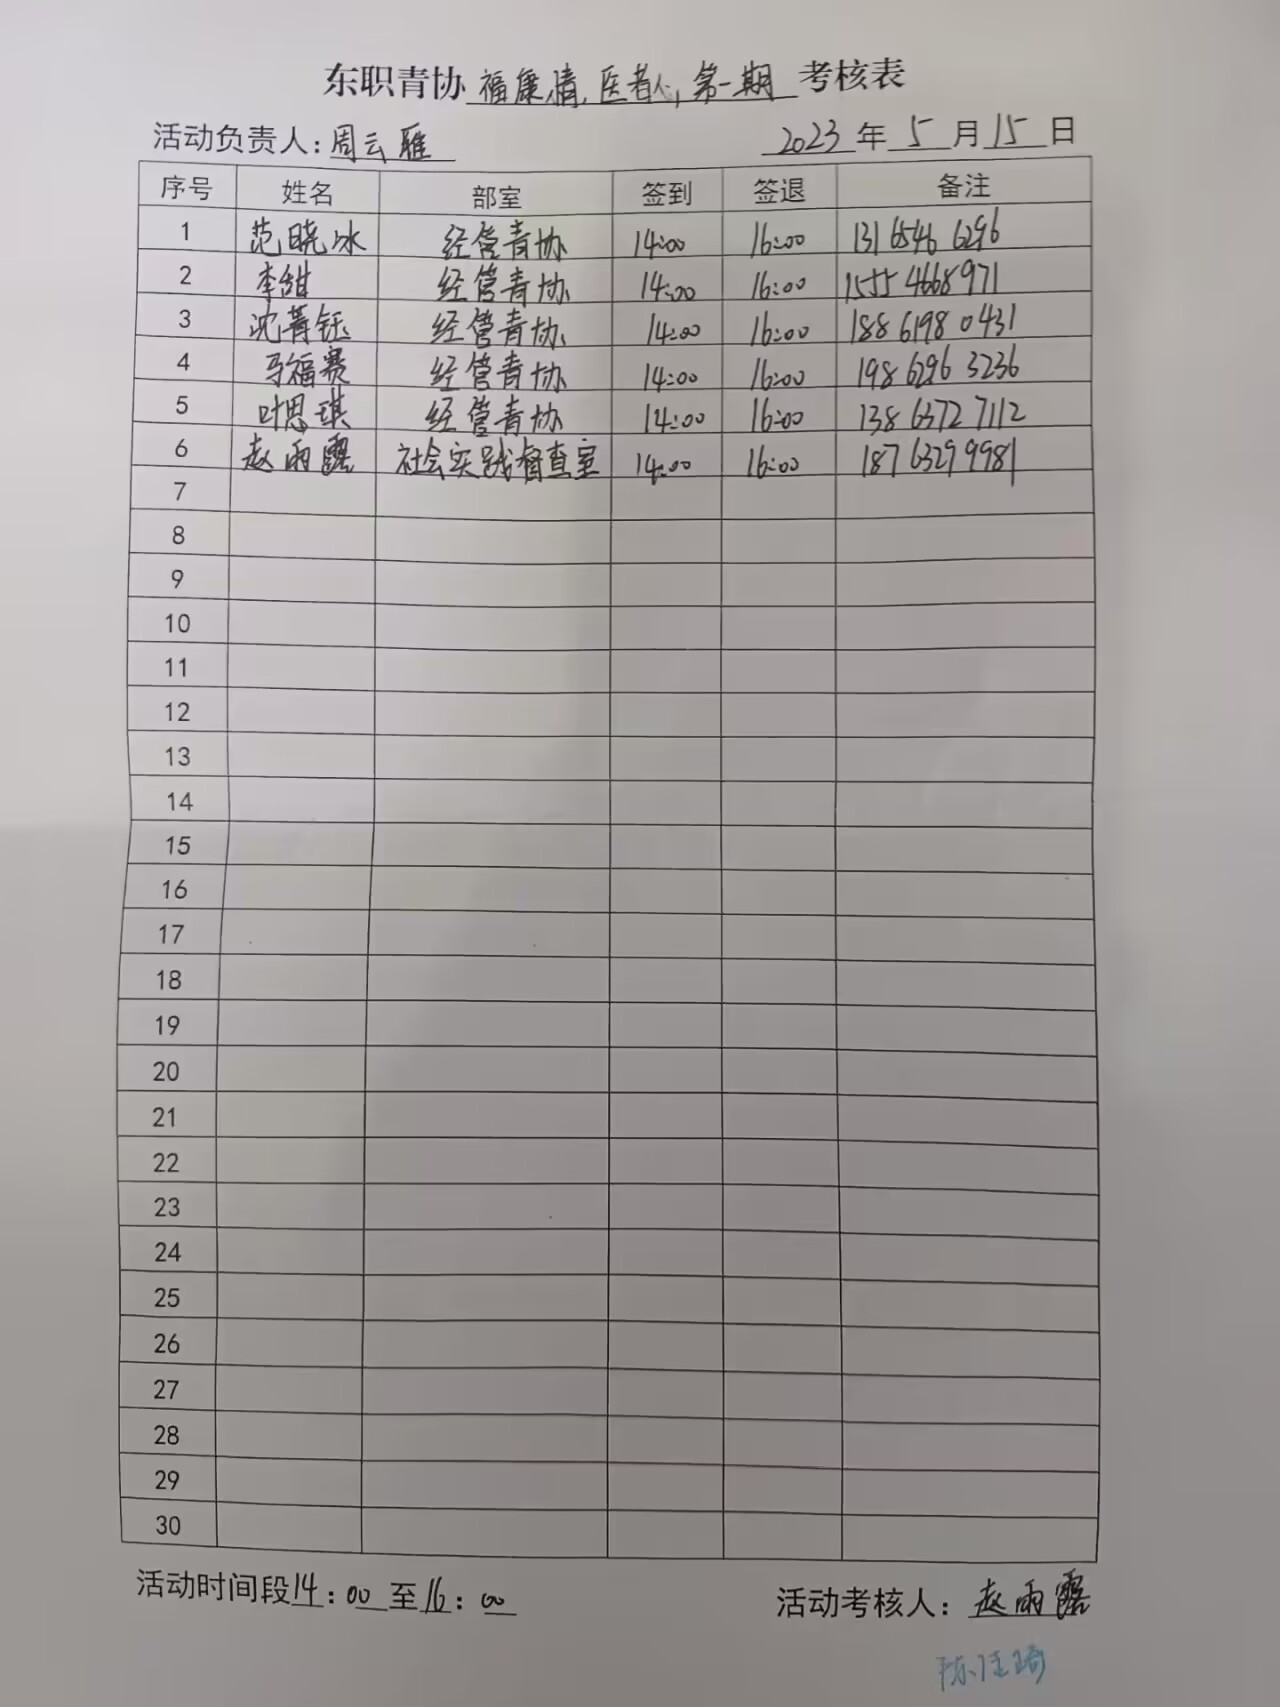 东职青协福康情,医者心,第一期考核表
活动负责人:周云雅 2023年5月15日
序号 姓名 部室 签到 签退 备注
1 范晓冰 经管青协 14:00 16:00 131 6546 6296
2 李甜 经管青协 14:00 16:00 1555 4668971
3 沈菁钰 经管青协 14:00 16:00 188 6198 0431
4 马福赛 经管青协 14:00 16:00 198 6296 3236
5 叶思琪 经管青协 14:00 16:00 138 6372 7112
6 赵雨露 社会实践督查室 14:00 16:00 187 6329 9981
7
8
9
10
11
12
13
14
15
16
17
18
19
20
21
22
23
24
25
26
27
28
29
30
活动时间段14:00至16:00 活动考核人:赵雨露
陈佳琦